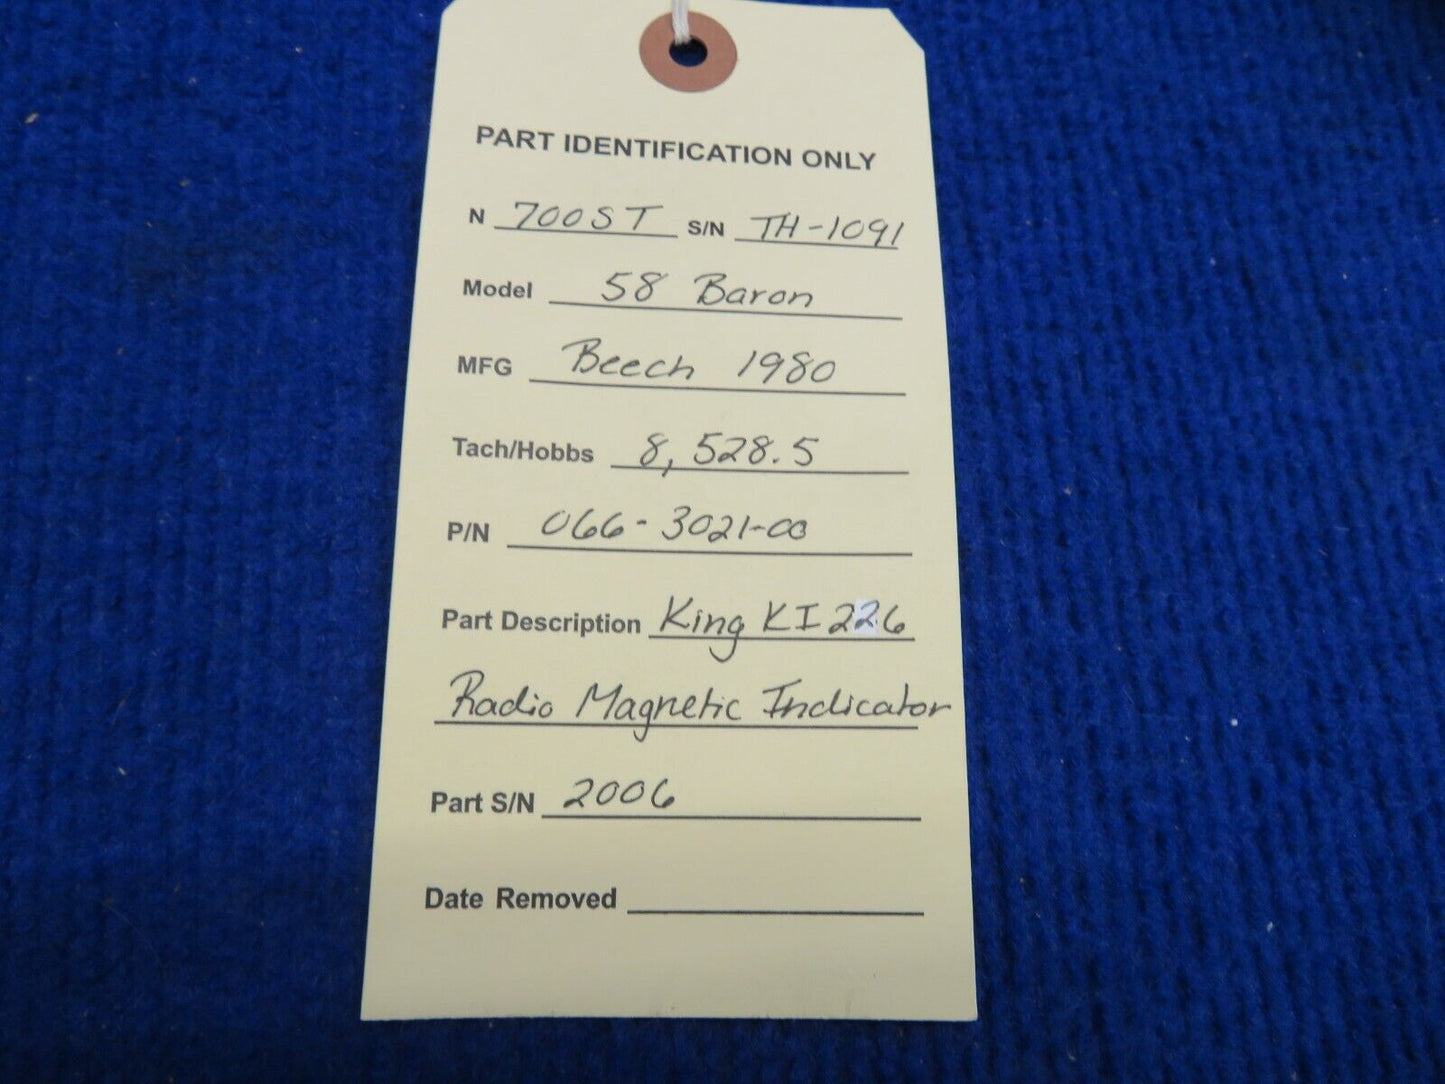 PART IDENTIFICATION ONLY
N 700ST S/N TH-1091
Model 58 Baron
MFG Beech 1980
Tach/Hobbs 8,528.5
P/N 066-3021-00
Part Description King KI 226
Radio Magnetic Indicator
Part S/N 2006
Date Removed